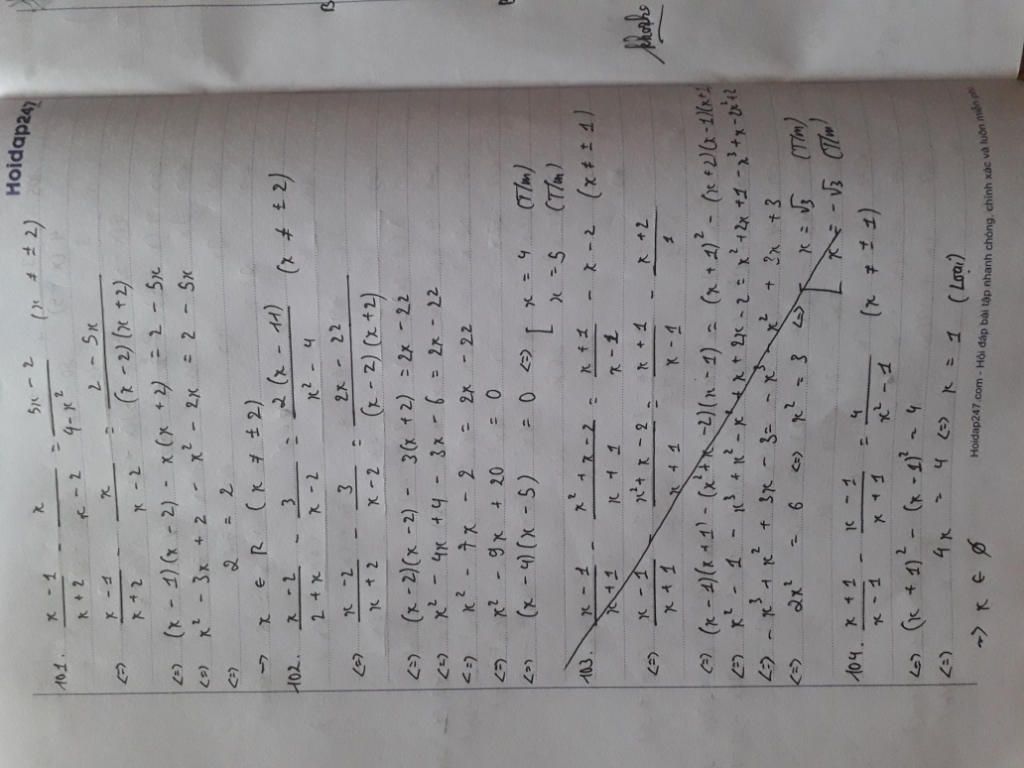 Hoidap247
101. x - 1 / x + 2 - x / x - 2 = 5x - 2 / 4 - x² (x ≠ ± 2)
<=> x - 1 / x + 2 - x / x - 2 = 2 - 5x / (x - 2)(x + 2)
<=> (x - 1)(x - 2) - x(x + 2) = 2 - 5x
<=> x² - 3x + 2 - x² - 2x = 2 - 5x
<=> 2 = 2
-> x ∈ R (x ≠ ± 2)
102. x - 2 / 2 + x - 3 / x - 2 = 2(x - 11) / x² - 4 (x ≠ ± 2)
<=> x - 2 / x + 2 - 3 / x - 2 = 2x - 22 / (x - 2)(x + 2)
<=> (x - 2)(x - 2) - 3(x + 2) = 2x - 22
<=> x² - 4x + 4 - 3x - 6 = 2x - 22
<=> x² - 7x - 2 = 2x - 22
<=> x² - 9x + 20 = 0
<=> (x - 4)(x - 5) = 0 <=> [ x = 4 (T/m)
x = 5 (T/m)
103. x - 1 / x + 1 - x² + x - 2 / x + 1 = x + 1 / x - 1 - x - 2 (x ≠ ± 1)
<=> x - 1 / x + 1 - x² + x - 2 / x + 1 = x + 1 / x - 1 - x + 2 / 1
<=> (x - 1)(x + 1) - (x² + x - 2)(x - 1) = (x + 1)² - (x + 2)(x - 1)(x + 1)
<=> x² - 1 - x³ + x² - x² + x + 2x - 2 = x² + 2x + 1 - x³ + x - 2x² + 2
<=> - x³ + x² + 3x - 3 = - x³ - x² + 3x + 3
<=> 2x² = 6 <=> x² = 3 <=> [ x = √3 (T/m)
x = - √3 (T/m)
104. x + 1 / x - 1 - x - 1 / x + 1 = 4 / x² - 1 (x ≠ ± 1)
<=> (x + 1)² - (x - 1)² = 4
<=> 4x = 4 <=> x = 1 (Loại)
-> x ∈ ∅
Hoidap247.com - Hỏi đáp bài tập nhanh chóng, chính xác và luôn miễn phí